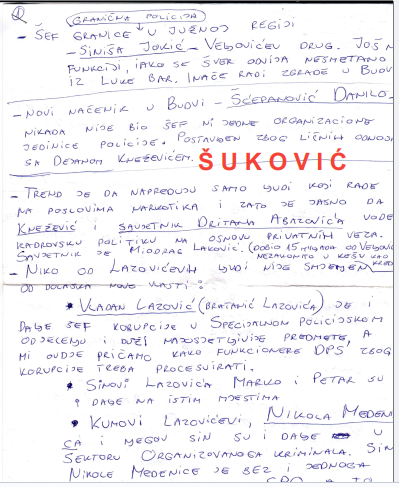 GRANIČNA POLICIJA
- ŠEF GRANICE U JUŽNOJ REGIJI
- SINIŠA JOKIĆ - VELJOVIĆEV DRUG. JOŠ N
FUNKCIJI, IAKO SE ŠVER ODVIJA NESMETANO
IZ LUKE BAR. INAČE RADI ZGRADE U BUDV
- NOVI NAČENIK U BUDVI - ŠĆEPANOVIĆ DANILO-
NIKADA NIJE BIO ŠEF NI JEDNE ORGANIZACIONE
JEDINICE POLICIJE. POSTAVLJEN ZBOG LIČNIH ODNOS
SA DEJANOM KNEŽEVIĆEM. ŠUKOVIĆ
- TREND JE DA NAPREDUJU SAMO LJUDI KOJI RADE
NA POSLOVIMA NARKOTIKA I ZATO JE JASNO DA
KNEŽEVIĆ I SAVJETNIK DRITANA ABAZOVIĆA VODE
KADROVSKU POLITIKU NA OSNOVU PRIVATNIH VEZA.
SAVJETNIK JE MIODRAG LAKOVIĆ. (DOBIO 15 HILJADA OD VELJOVIĆ
NEZAKONITO U KEŠU KAO KRED
- NIKO OD LAZOVIĆEVIH LJUDI NIJE SMIJENJEN
OD DOLASKA NOVE VLASTI:
• VLADAN LAZOVIĆ (BRATANIĆ LAZOVIĆA) JE I
DALJE ŠEF KORUPCIJE U SPECIJALNOM POLICIJSKOM
ODJELJENJU I DRŽI NAJOSJETLJIVIJE PREDMETE, A
MI OVDJE PRIČAMO KAKO FUNKCIONERE DPS ZBOG
KORUPCIJE TREBA PROCESUIRATI.
• SINOVI LAZOVIĆA MARKO I PETAR SU
I DALJE NA ISTIM MJESTIMA
• KUMOVI LAZOVIĆEVI, NIKOLA MEDENI
CA I NJEGOV SIN SU I DALJE U
SEKTORU ORGANIZOVANOGA KRIMINALA. SIN
NIKOLE MEDENICE JE BEZ I JEDNOGA